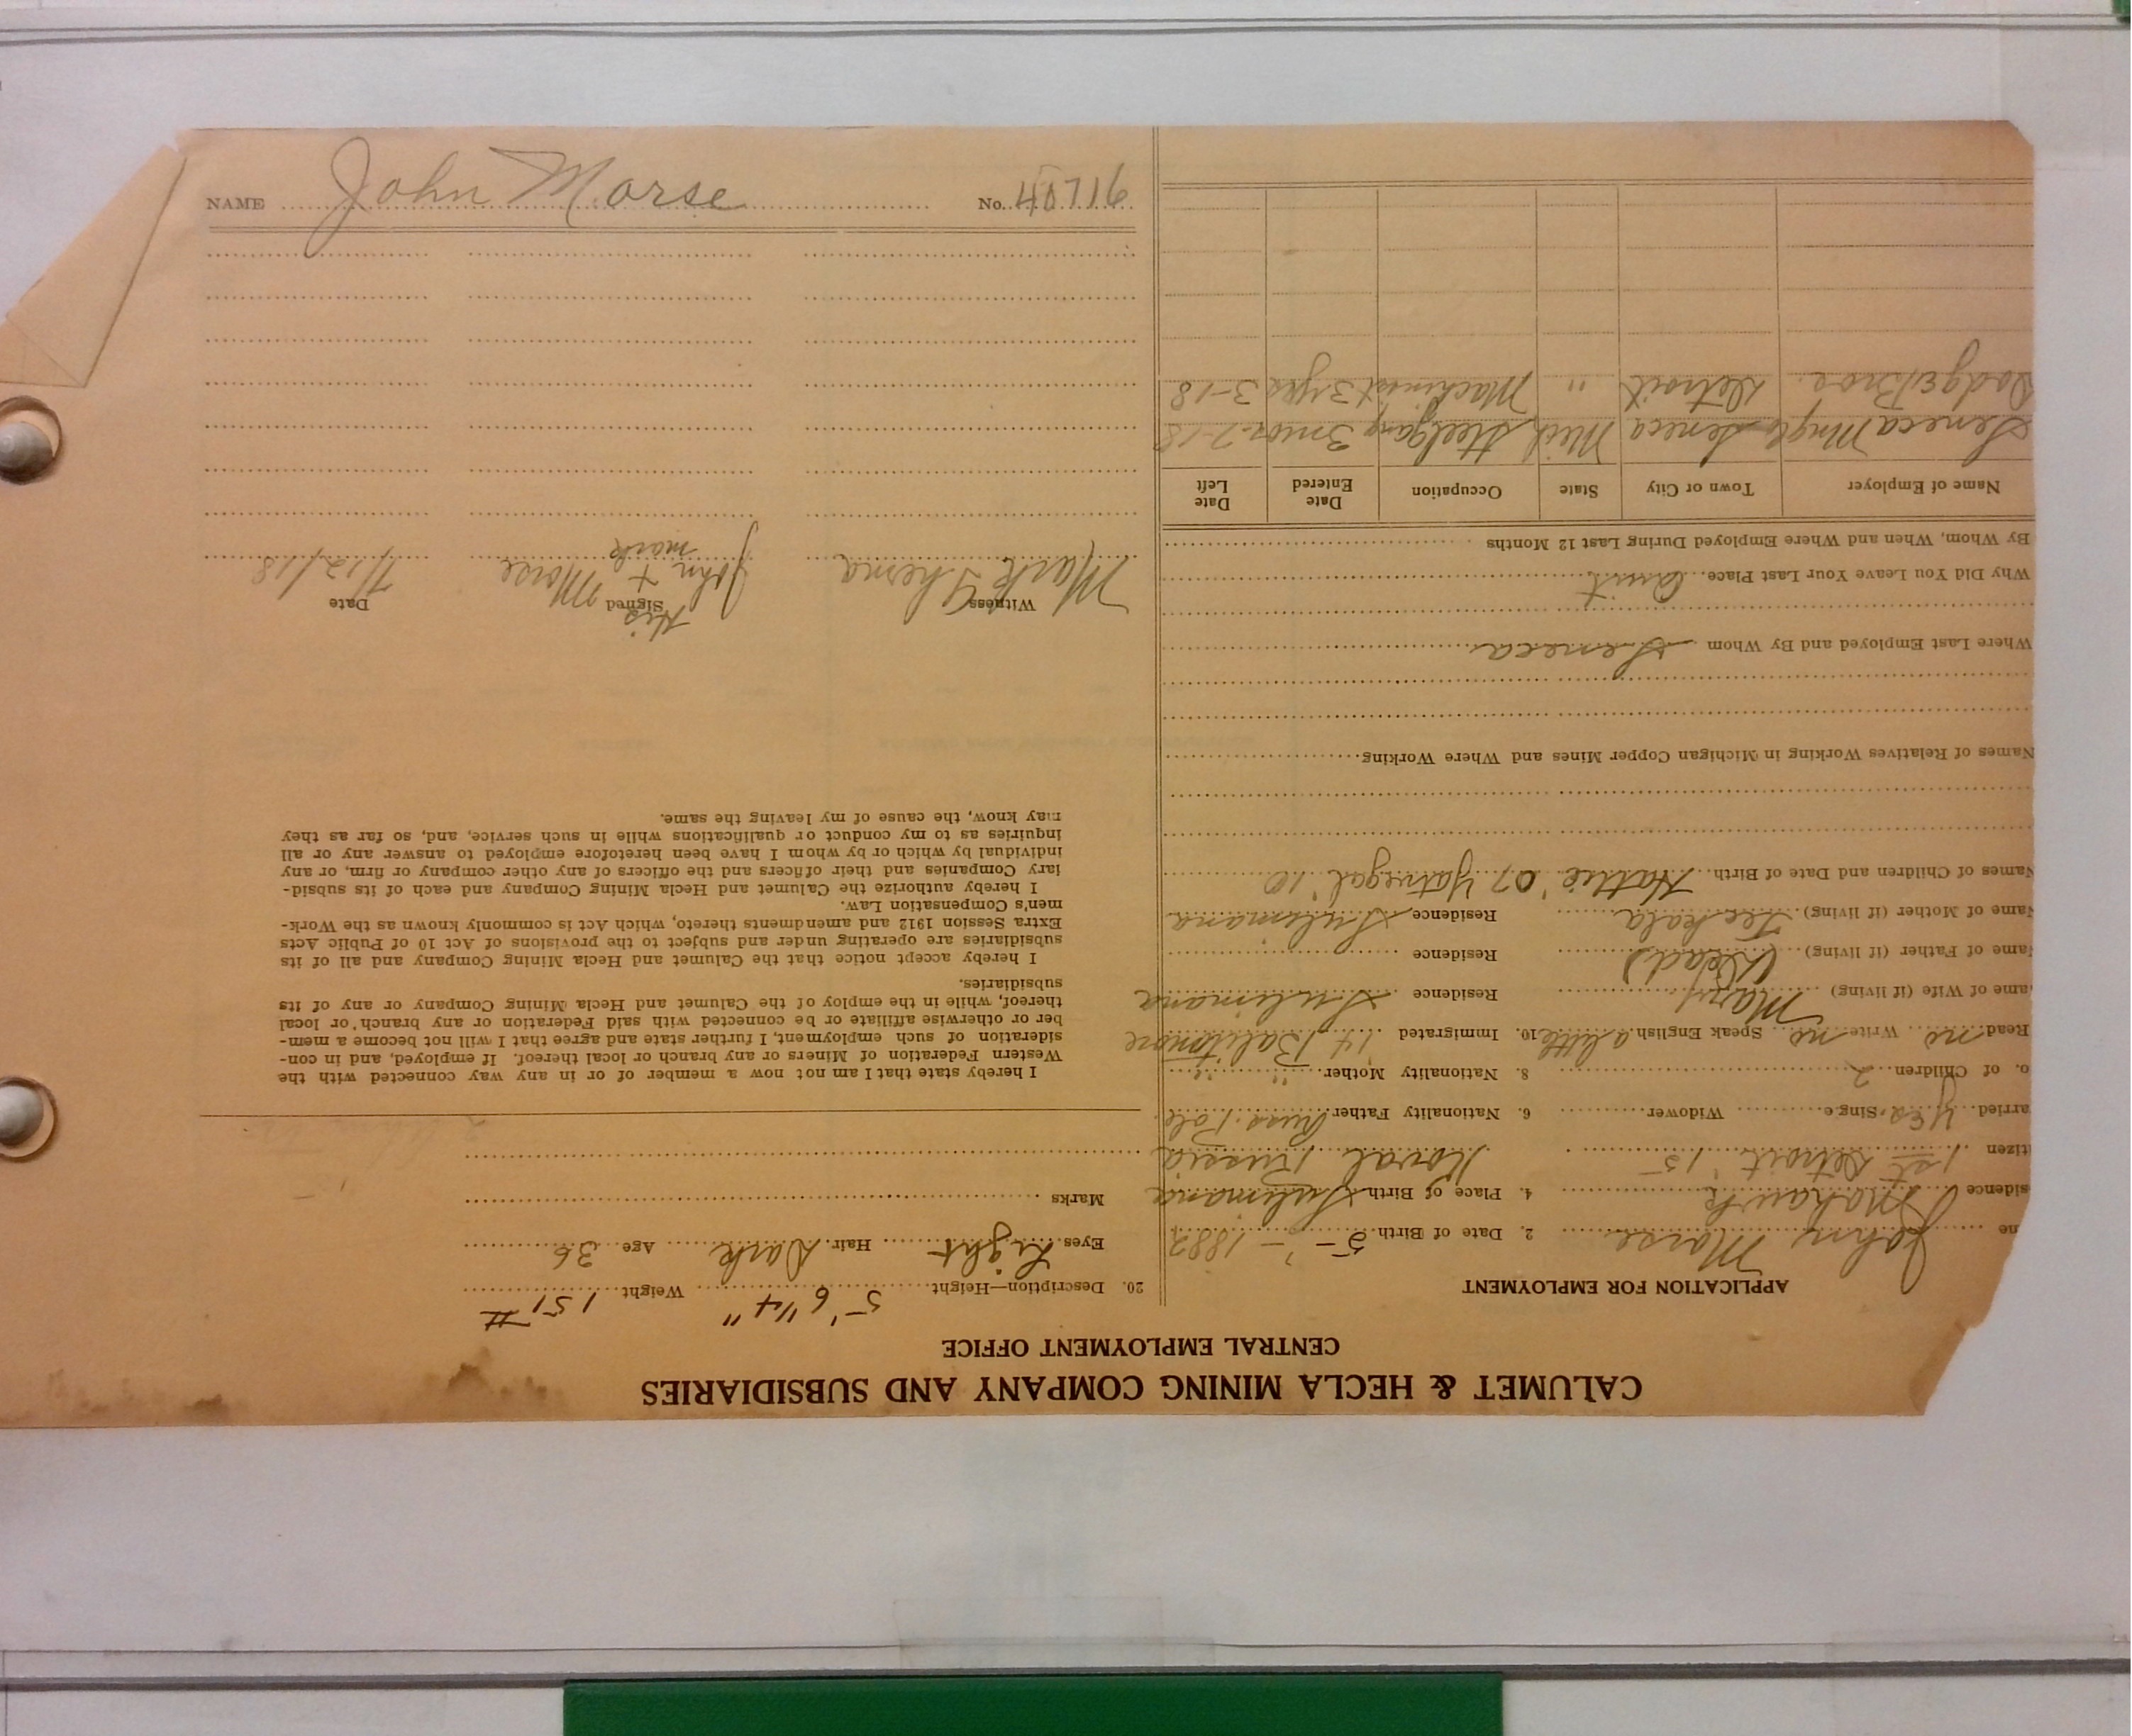 CALUMET & HECLA MINING COMPANY AND SUBSIDIARIES
CENTRAL EMPLOYMENT OFFICE
APPLICATION FOR EMPLOYMENT
me John Morse 2. Date of Birth 5-?-1882
sidence Mohawk 4. Place of Birth Sulimana
itizen 1st Detroit '15 Koval Russia
arried Yes Single Widower 6. Nationality Father Russ. Pole
o. of Children 2 8. Nationality Mother " "
Read no Write no Speak English a little 10. Immigrated '14 Balitomore
ame of Wife (if living) Mary Residence Sulimana
Name of Father (if living) (Dead) Residence
Name of Mother (if living) Teekala Residence Sulimana
Names of Children and Date of Birth Hattie '07 '10
Names of Relatives Working in Michigan Copper Mines and Where Working
Where Last Employed and By Whom Seneca
Why Did You Leave Your Last Place Quit
By Whom, When and Where Employed During Last 12 Months
Name of Employer Town or City State Occupation Date Entered Date Left
Seneca Mng Co Seneca Mich Steelgang 3 mos 7-18
Dodge Bros. Detroit " Machinist 3 yrs 3-18
20. Description—Height 5' 6 1/4" Weight 151 #
Eyes Light Hair Dark Age 36
Marks
I hereby state that I am not now a member of or in any way connected with the
Western Federation of Miners or any branch or local thereof. If employed, and in con-
sideration of such employment, I further state and agree that I will not become a mem-
ber or otherwise affiliate or be connected with said Federation or any branch or local
thereof, while in the employ of the Calumet and Hecla Mining Company or any of its
subsidiaries.
I hereby accept notice that the Calumet and Hecla Mining Company and all of its
subsidiaries are operating under and subject to the provisions of Act 10 of Public Acts
Extra Session 1912 and amendments thereto, which Act is commonly known as the Work-
men's Compensation Law.
I hereby authorize the Calumet and Hecla Mining Company and each of its subsid-
iary Companies and their officers and the officers of any other company or firm, or any
individual by which or by whom I have been heretofore employed to answer any or all
inquiries as to my conduct or qualifications while in such service, and, so far as they
may know, the cause of my leaving the same.
Witness Signed Date
His
Mark John + Morse 7/12/18
mark
NAME John Morse No.